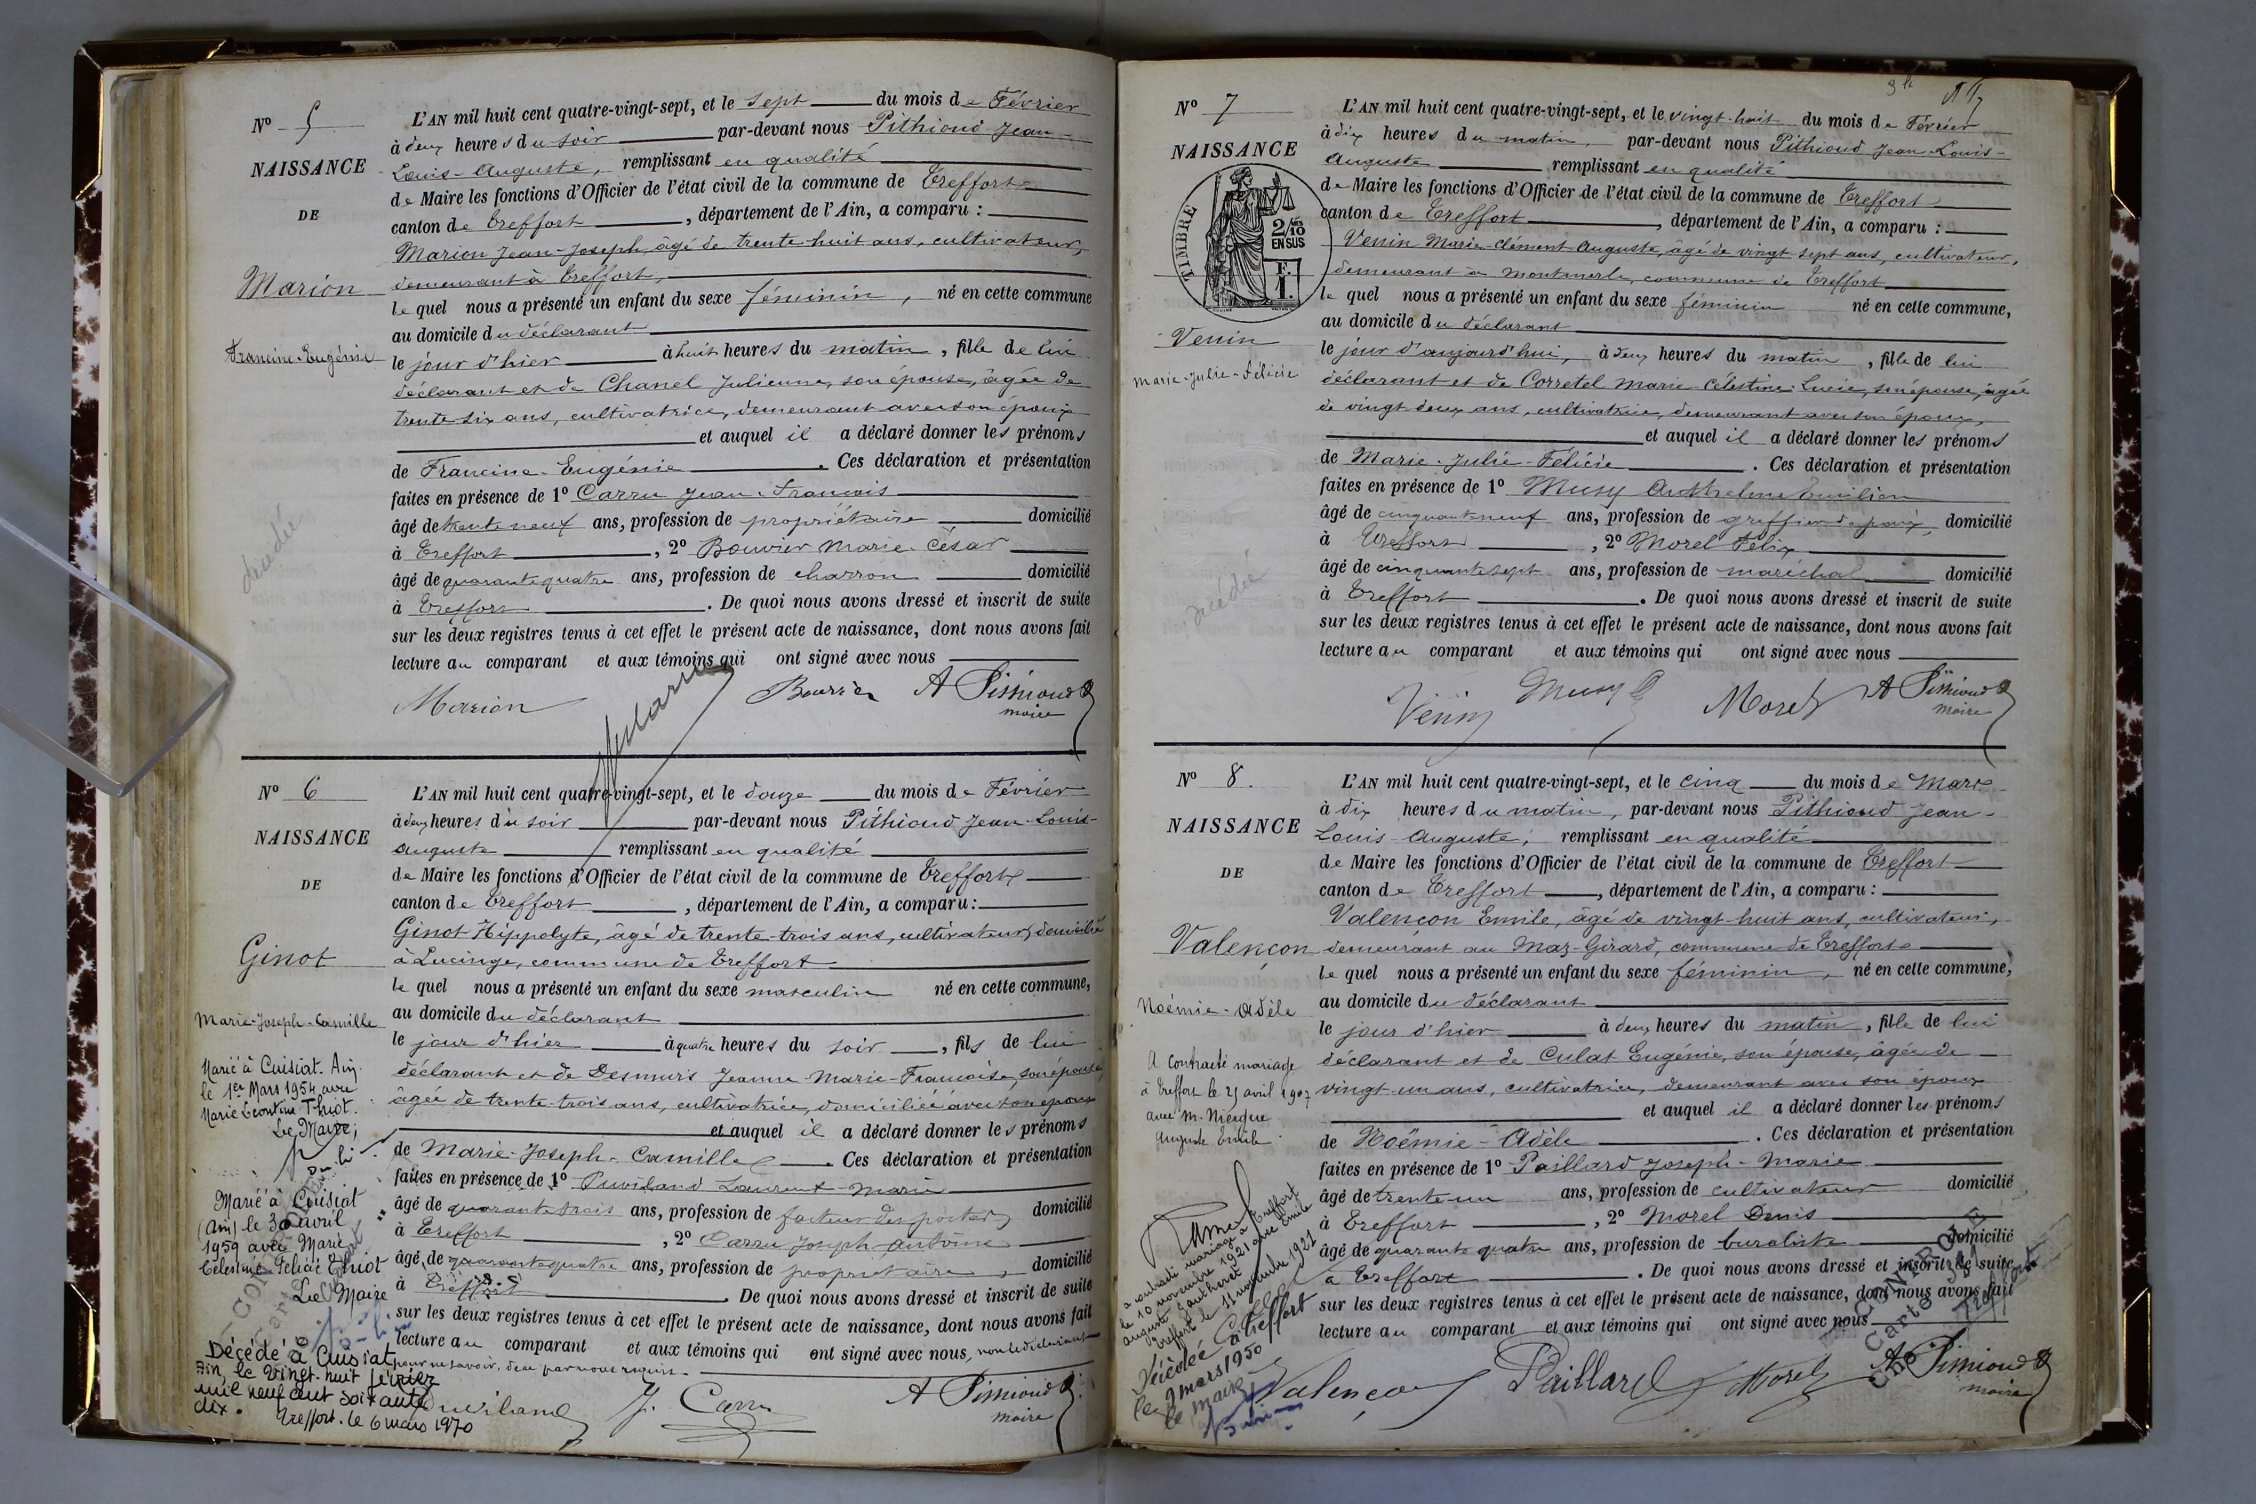 Nº 5
NAISSANCE
DE
Marion
Francine-Eugénie
décédée
L'AN mil huit cent quatre-vingt-sept, et le sept du mois de Février
à deux heures du soir par-devant nous Pithioud Jean-
Louis-Auguste, remplissant en qualité
de Maire les fonctions d'Officier de l'état civil de la commune de Treffort
canton de Treffort, département de l'Ain, a comparu :
Marion Jean-Joseph, âgé de trente-huit ans, cultivateur,
demeurant à Treffort,
le quel nous a présenté un enfant du sexe féminin, né en cette commune
au domicile du déclarant
le jour d'hier à huit heures du matin, fille de lui
déclarant et de Chanel Julienne, son épouse, âgée de
trente-six ans, cultivatrice, demeurant avec son époux
et auquel il a déclaré donner les prénoms
de Francine-Eugénie. Ces déclaration et présentation
faites en présence de 1º Carru Jean-François
âgé de trente neuf ans, profession de propriétaire domicilié
à Treffort, 2º Bouvier Marie-César
âgé de quarante quatre ans, profession de charron domicilié
à Treffort. De quoi nous avons dressé et inscrit de suite
sur les deux registres tenus à cet effet le présent acte de naissance, dont nous avons fait
lecture au comparant et aux témoins qui ont signé avec nous
Marion Bouvier A Pithioud
maire
Nº 6
NAISSANCE
DE
Ginot
Marie-Joseph-Camille
Marié à Cuisiat. Ain.
le 1er Mars 1954 avec
Marie Léontine Thiot.
Le Maire,
Marié à Cuisiat
(Ain) le 30 avril
1959 avec Marie
Célestine Félicie Thiot
Le Maire
Décédé à Cuisiat
Ain, le vingt-huit février
mil neuf cent soixante
dix.
Treffort. le 6 mars 1970
L'AN mil huit cent quatre-vingt-sept, et le douze du mois de Février
à deux heures du soir par-devant nous Pithioud Jean-Louis-
Auguste remplissant en qualité
de Maire les fonctions d'Officier de l'état civil de la commune de Treffort
canton de Treffort, département de l'Ain, a comparu :
Ginot Hippolyte, âgé de trente-trois ans, cultivateur, domicilié
à Lucinge, commune de Treffort
le quel nous a présenté un enfant du sexe masculin né en cette commune,
au domicile du déclarant
le jour d'hier à quatre heures du soir, fils de lui
déclarant et de Desmuris Jeanne-Marie-Françoise, son épouse,
âgée de trente-trois ans, cultivatrice, domiciliée avec son époux
et auquel il a déclaré donner les prénoms
de Marie-Joseph-Camille. Ces déclaration et présentation
faites en présence de 1º Puviland Laurent-Marie
âgé de quarante trois ans, profession de facteur des postes domicilié
à Treffort, 2º Carru Joseph-Antoine
âgé de quarante quatre ans, profession de propriétaire, domicilié
à Treffort. De quoi nous avons dressé et inscrit de suite
sur les deux registres tenus à cet effet le présent acte de naissance, dont nous avons fait
lecture au comparant et aux témoins qui ont signé avec nous, non le déclarant
pour ne savoir, de ce par nous requis.
Puviland J. Carru A Pithioud
maire
Nº 7
NAISSANCE
TIMBRE
2/10
EN SUS
F.
1.
Venin
Marie-Julie-Félicie
décédée
L'AN mil huit cent quatre-vingt-sept, et le vingt-huit du mois de Février
à dix heures du matin, par-devant nous Pithioud Jean-Louis-
Auguste remplissant en qualité
de Maire les fonctions d'Officier de l'état civil de la commune de Treffort
canton de Treffort, département de l'Ain, a comparu :
Venin Marie-Clément-Auguste, âgé de vingt sept ans, cultivateur,
demeurant à Montmerle, commune de Treffort
le quel nous a présenté un enfant du sexe féminin né en cette commune,
au domicile du déclarant
le jour d'aujourd'hui, à deux heures du matin, fille de lui
déclarant et de Corretel Marie-Célestine-Lucie, son épouse, âgée
de vingt-deux ans, cultivatrice, demeurant avec son époux,
et auquel il a déclaré donner les prénoms
de Marie-Julie-Félicie. Ces déclaration et présentation
faites en présence de 1º Musy Anthelme Emilien
âgé de cinquante neuf ans, profession de greffier de paix, domicilié
à Treffort, 2º Morel Félix
âgé de cinquante sept ans, profession de maréchal domicilié
à Treffort. De quoi nous avons dressé et inscrit de suite
sur les deux registres tenus à cet effet le présent acte de naissance, dont nous avons fait
lecture au comparant et aux témoins qui ont signé avec nous
Venin Musy Morel A Pithioud
maire
Nº 8.
NAISSANCE
DE
Valençon
Noémie-Adèle
A contracté mariage
à Treffort le 25 avril 1907
avec M. Niérgue
Auguste Emile
a contracté mariage à Treffort
le 10 novembre 1921 avec Emile
Auguste Gautheret
Treffort le 11 novembre 1921
Décédée à Treffort
le 9 mars 1950
le maire
L'AN mil huit cent quatre-vingt-sept, et le cinq du mois de Mars
à dix heures du matin, par-devant nous Pithioud Jean-
Louis-Auguste, remplissant en qualité
de Maire les fonctions d'Officier de l'état civil de la commune de Treffort
canton de Treffort, département de l'Ain, a comparu :
Valençon Emile, âgé de vingt-huit ans, cultivateur,
demeurant au Maz-Girard, commune de Treffort
le quel nous a présenté un enfant du sexe féminin, né en cette commune,
au domicile du déclarant
le jour d'hier à deux heures du matin, fille de lui
déclarant et de Culat Eugénie, son épouse, âgée de
vingt-un ans, cultivatrice, demeurant avec son époux
et auquel il a déclaré donner les prénoms
de Noémie-Adèle. Ces déclaration et présentation
faites en présence de 1º Paillard Joseph-Marie
âgé de trente-un ans, profession de cultivateur domicilié
à Treffort, 2º Morel Denis
âgé de quarante quatre ans, profession de buraliste domicilié
à Treffort. De quoi nous avons dressé et inscrit de suite
sur les deux registres tenus à cet effet le présent acte de naissance, dont nous avons fait
lecture au comparant et aux témoins qui ont signé avec nous
CONTROLE
Carte
Treffort
Valençon Paillard Morel A Pithioud
maire